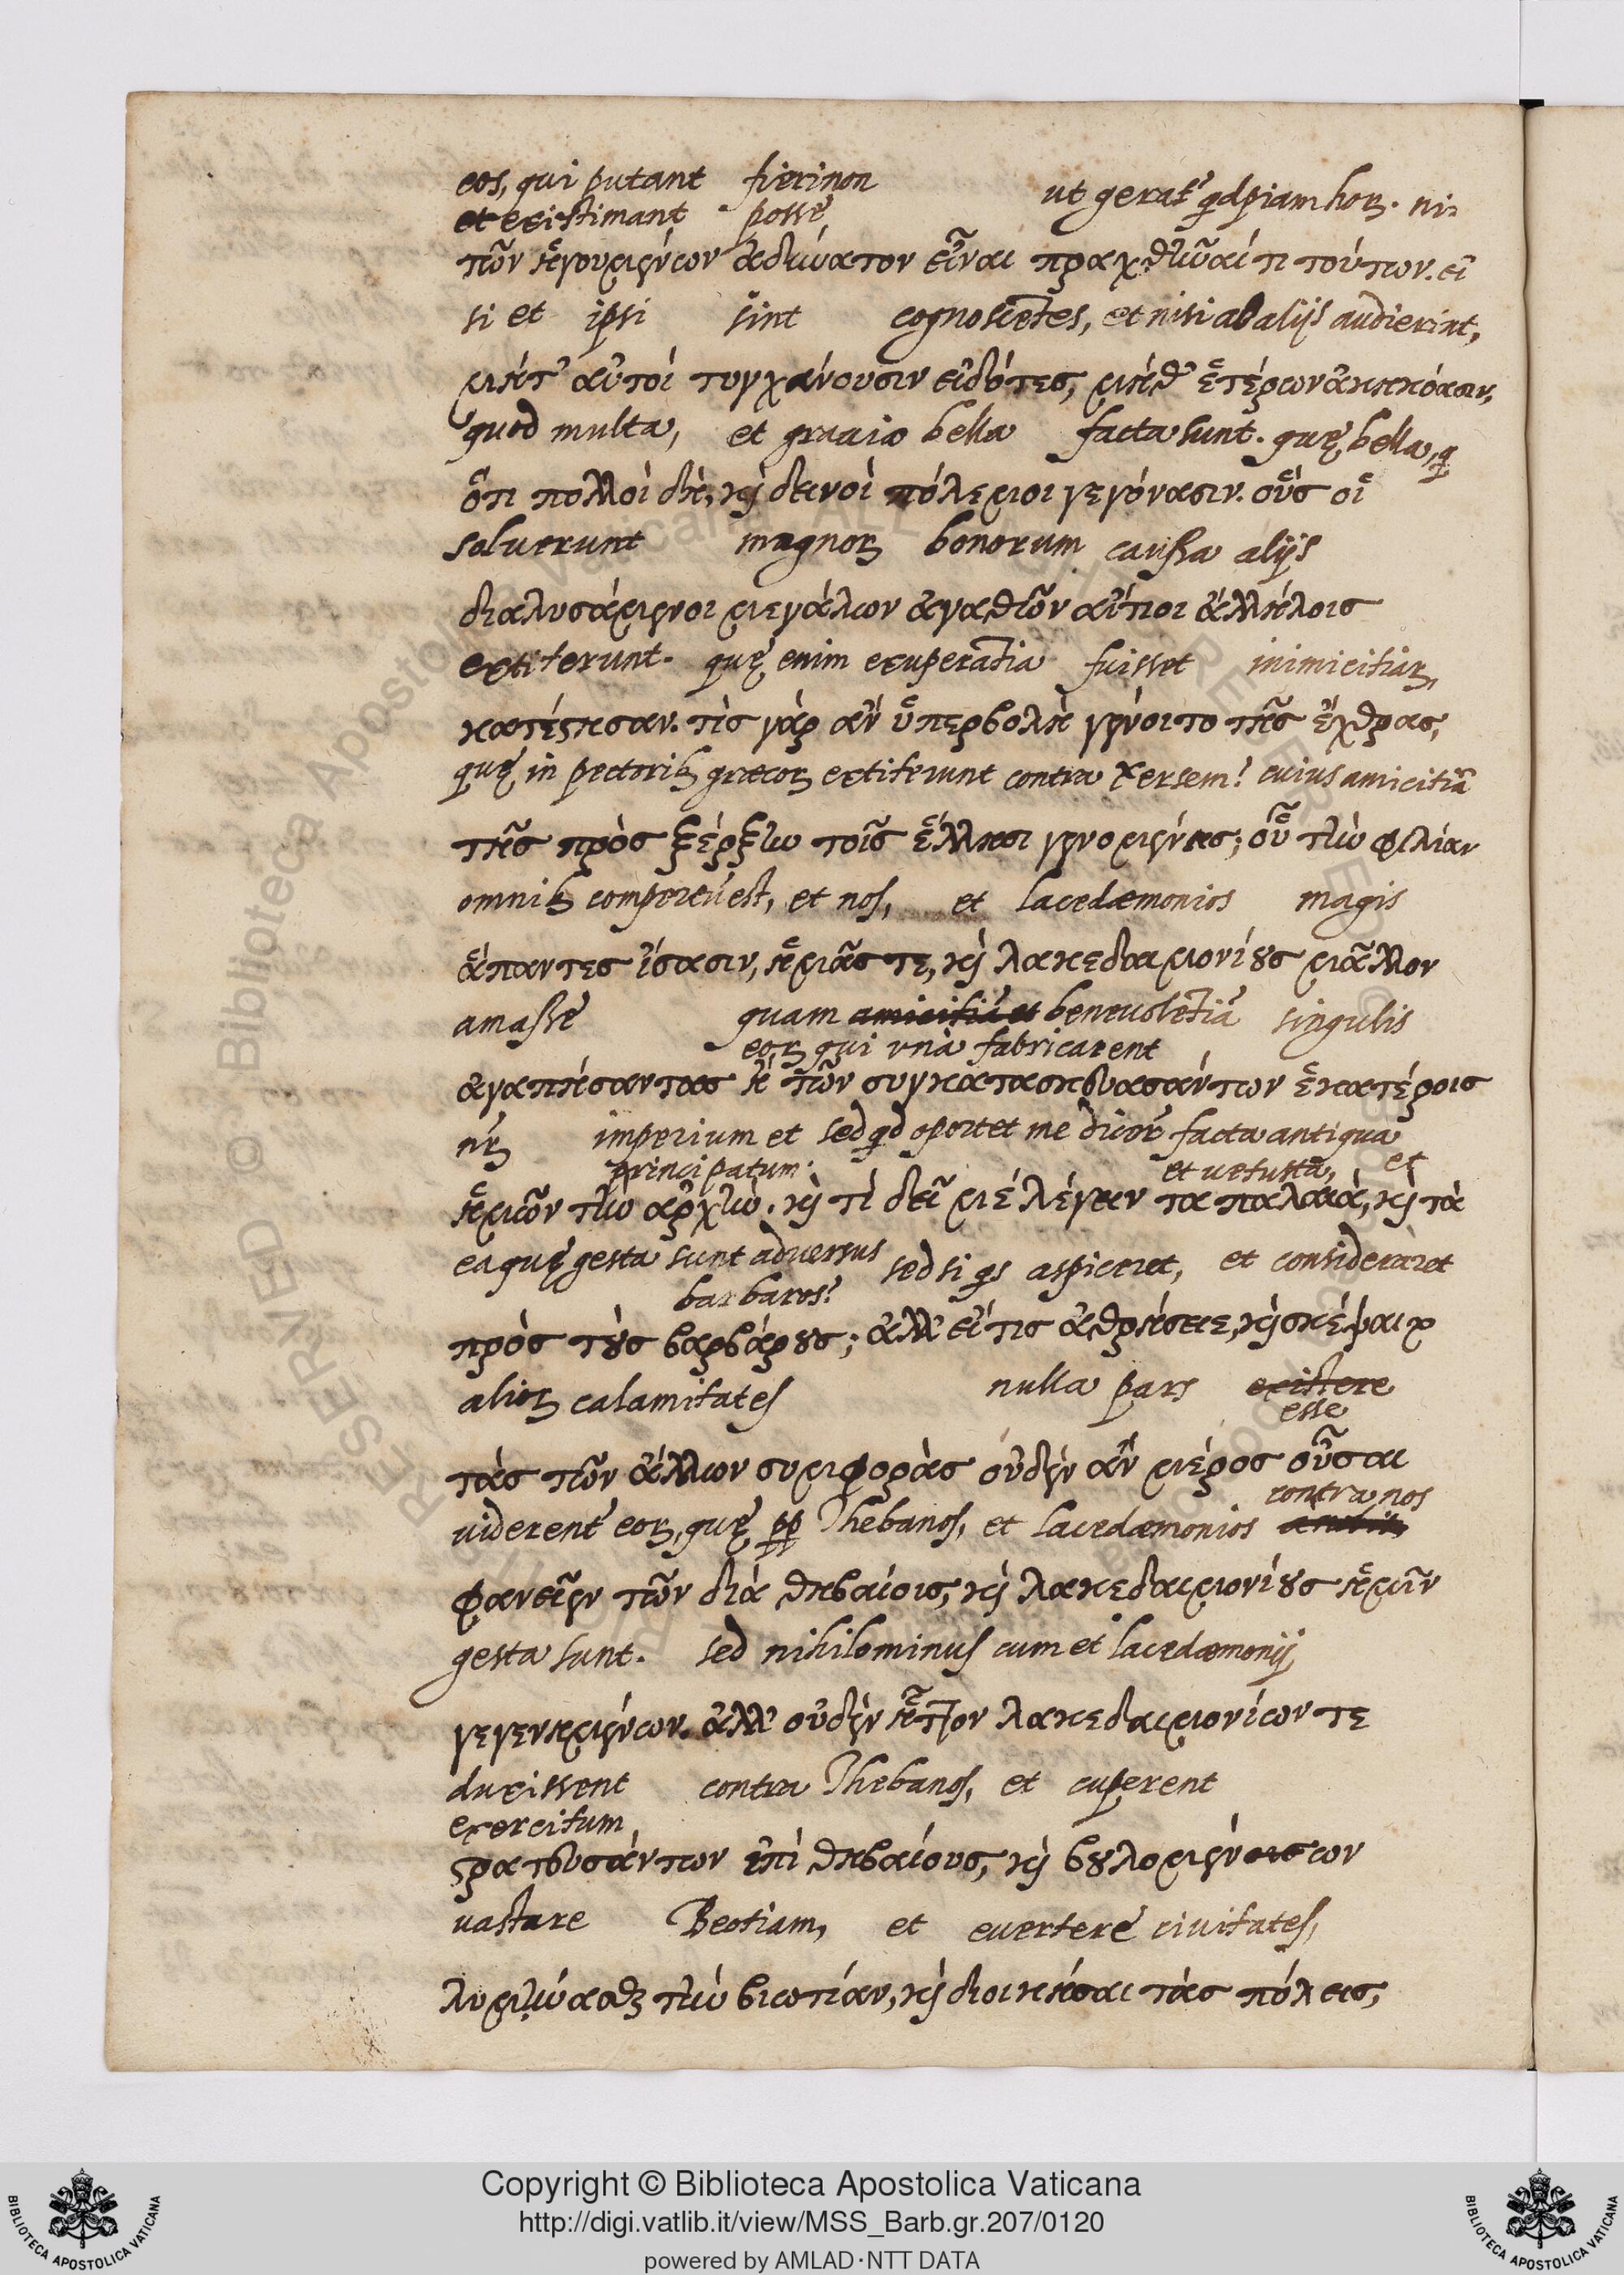 eos, qui putant fieri non ut gerat᷑ qdpiam hoꝝ. ni⸗
et existimant posse,
τῶν ἡγουμένων ἀδύνατον εἶναι πραχθῆναί τι τούτων. εἰ
si et ipsi sint cognoscẽtes, et nisi ab aliis audierint,
μήτ' αὐτοί τυγχάνουσιν εἰδότες, μήθ' ἑτέρων ἀκηκόασιν,
quod multa, et gravia bella facta sunt. quę bella, q
ὅτι πολλοὶ δή, κὶ δεινοὶ πόλεμοι γεγόνασιν. οὓς οἱ
soluerunt magnoꝝ bonorum caussa aliis
διαλυσάμενοι μεγάλων ἀγαθῶν αἴτιοι ἀλλήλοις
extiterunt. quę enim exuperãtia fuisset inimicitiaꝝ,
κατέστησαν. τίς γάρ ἂν ὑπερβολὴ γένοιτο τῆς ἔχθρας,
quę in pectoribꝫ græcoꝝ extiterunt contra Xersem? cuius amicitiã
τῆς πρὸς ξέρξην τοῖς ἕλλησι γενομένης; οὗ τὴν φιλίαν
omnibꝫ compertũ est, et nos, et lacedæmonios magis
ἅπαντες ἴσασιν, ἡμᾶς τε, κὶ λακεδαιμονίους μᾶλλον
amasse quam amicitiã et beneuolẽtiã singulis
eoꝝ qui vnà fabricarent
ἀγαπήσαντας ἢ τῶν συγκατασκευασάντων ἑκατέροις
nrꝫ imperium et sed qd oportet me dicere facta antiqua
principatum. et vetusta, et
ἡμῶν τὴν ἀρχήν. κὶ τί δεῖ μέ λέγειν τα παλαιά, κὶ τὰ
ea quę gesta sunt adversus sed si qs aspiceret, et consideraret
barbaros?
πρὸς τοὺς βαρβάρους; ἀλλ' εἴ τις ἀθρήσειε, κὶ σκέψαιτο
alioꝝ calamitates nulla pars existere
esse
τάς τῶν ἄλλων συμφοράς οὐδέν ἂν μέρος οὖσαι
contra nos
viderent᷑ eoꝝ, quę pp Thebanos, et lacedæmonios
φανεῖεν τῶν διά θηβαίοις, κὶ λακεδαιμονίους ἡμῖν
gesta sunt. sed nihilominus cum et lacedæmonii,
γεγενημένων. ἀλλ' οὐδὲν ἧττον λακεδαιμονίων τε
duxissent contra Thebanos, et cuperent
exercitum
στρατευσάντων ἐπὶ θηβαίους, κὶ βουλομένοισων
vastare Beotiam, et evertere civitates,
λυμήνασθαι τὴν βιωτίαν, κὶ διοικήσαι τάς πόλεις,
Copyright © Biblioteca Apostolica Vaticana
http://digi.vatlib.it/view/MSS_Barb.gr.207/0120
powered by AMLAD·NTT DATA
BIBLIOTECA APOSTOLICA VATICANA
BIBLIOTECA APOSTOLICA VATICANA